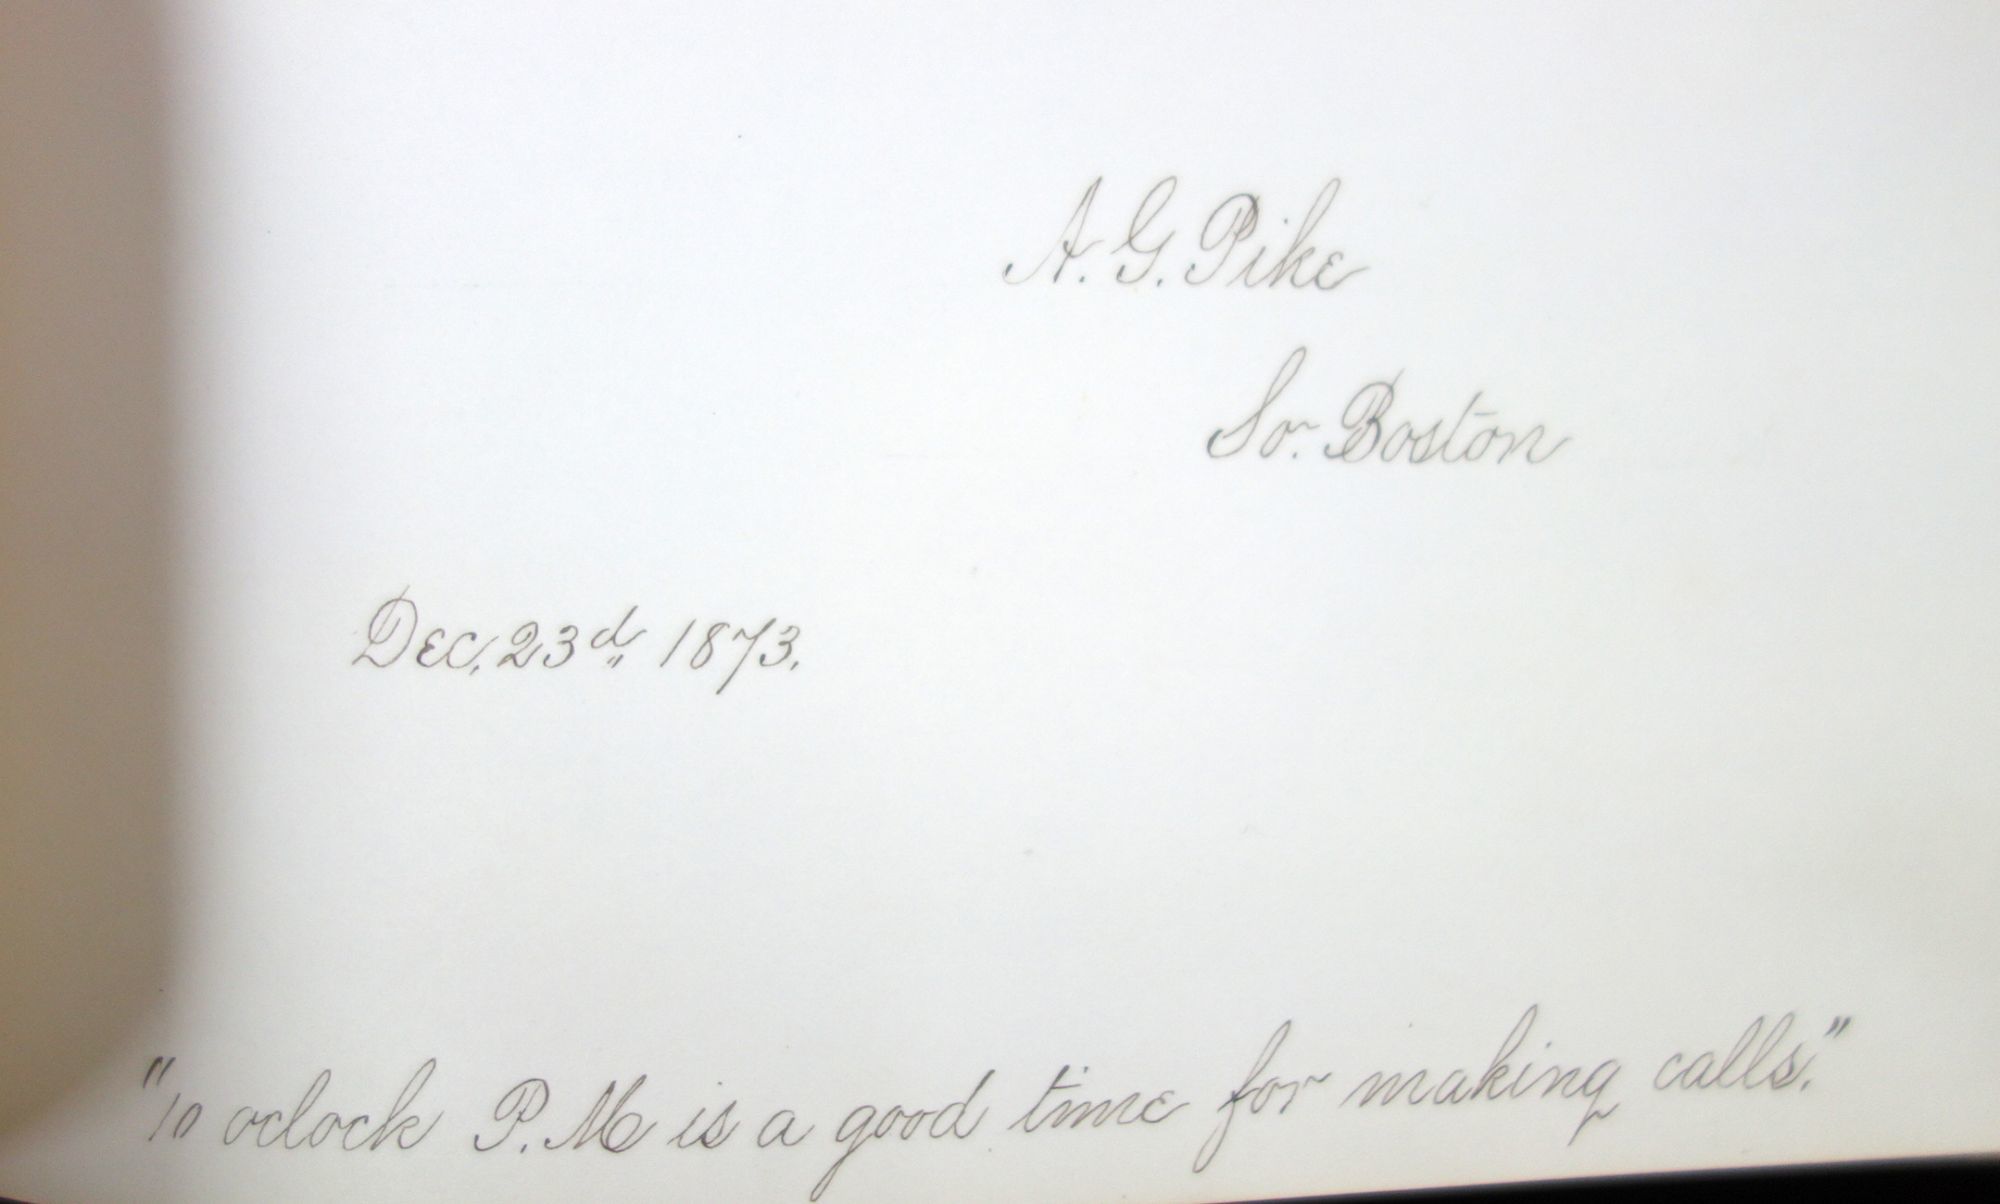 A. G. Pike
So. Boston
Dec. 23d 1873.
"10 oclock P.M is a good time for making calls."